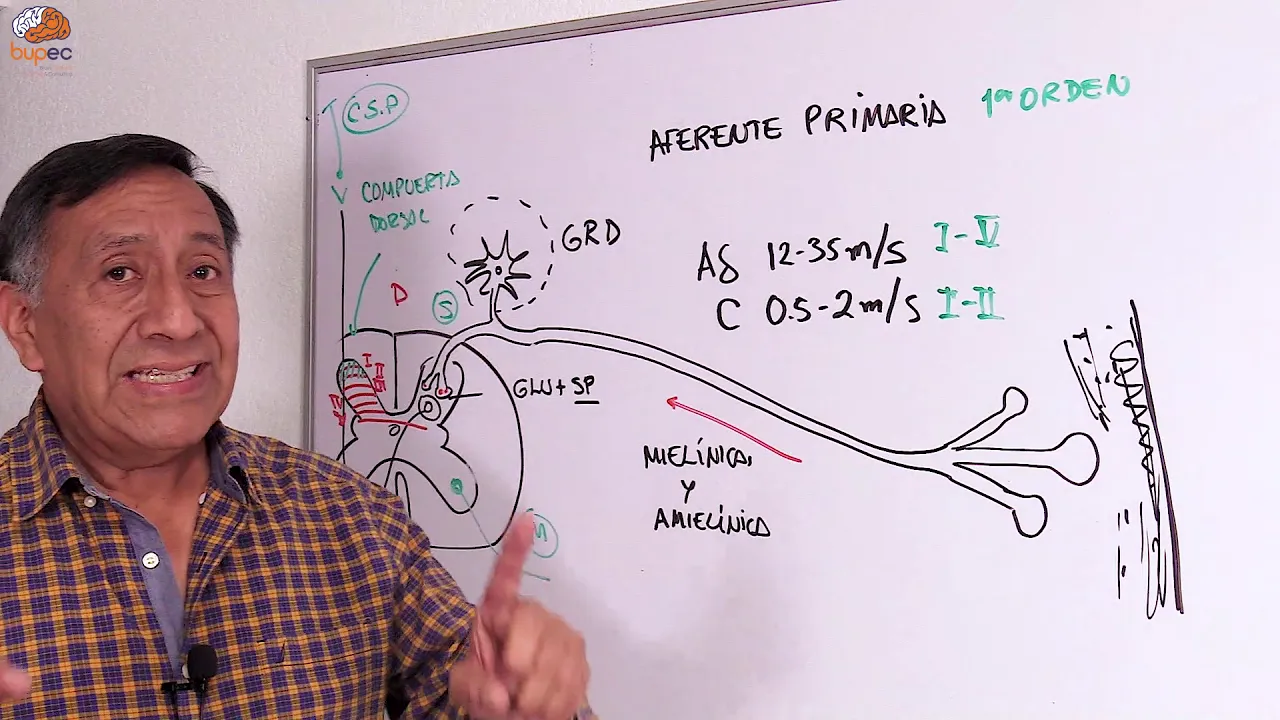 bupec
C.S.P
COMPUERTA
DORSAL
D
S
GRD
AFERENTE PRIMARIA 1er ORDEN
Aδ 12-35m/s I-V
C 0.5-2m/s I-II
I
II
III
GLU + SP
MIELÍNICA
Y
AMIELÍNICA
M